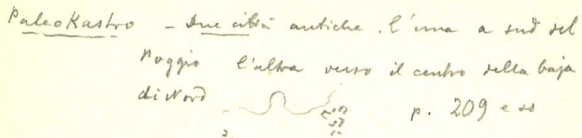 PaleoKastro - Due città antiche. l'una a sud del
Poggio l'altra verso il centro della baja
di Nord p. 209 e ss